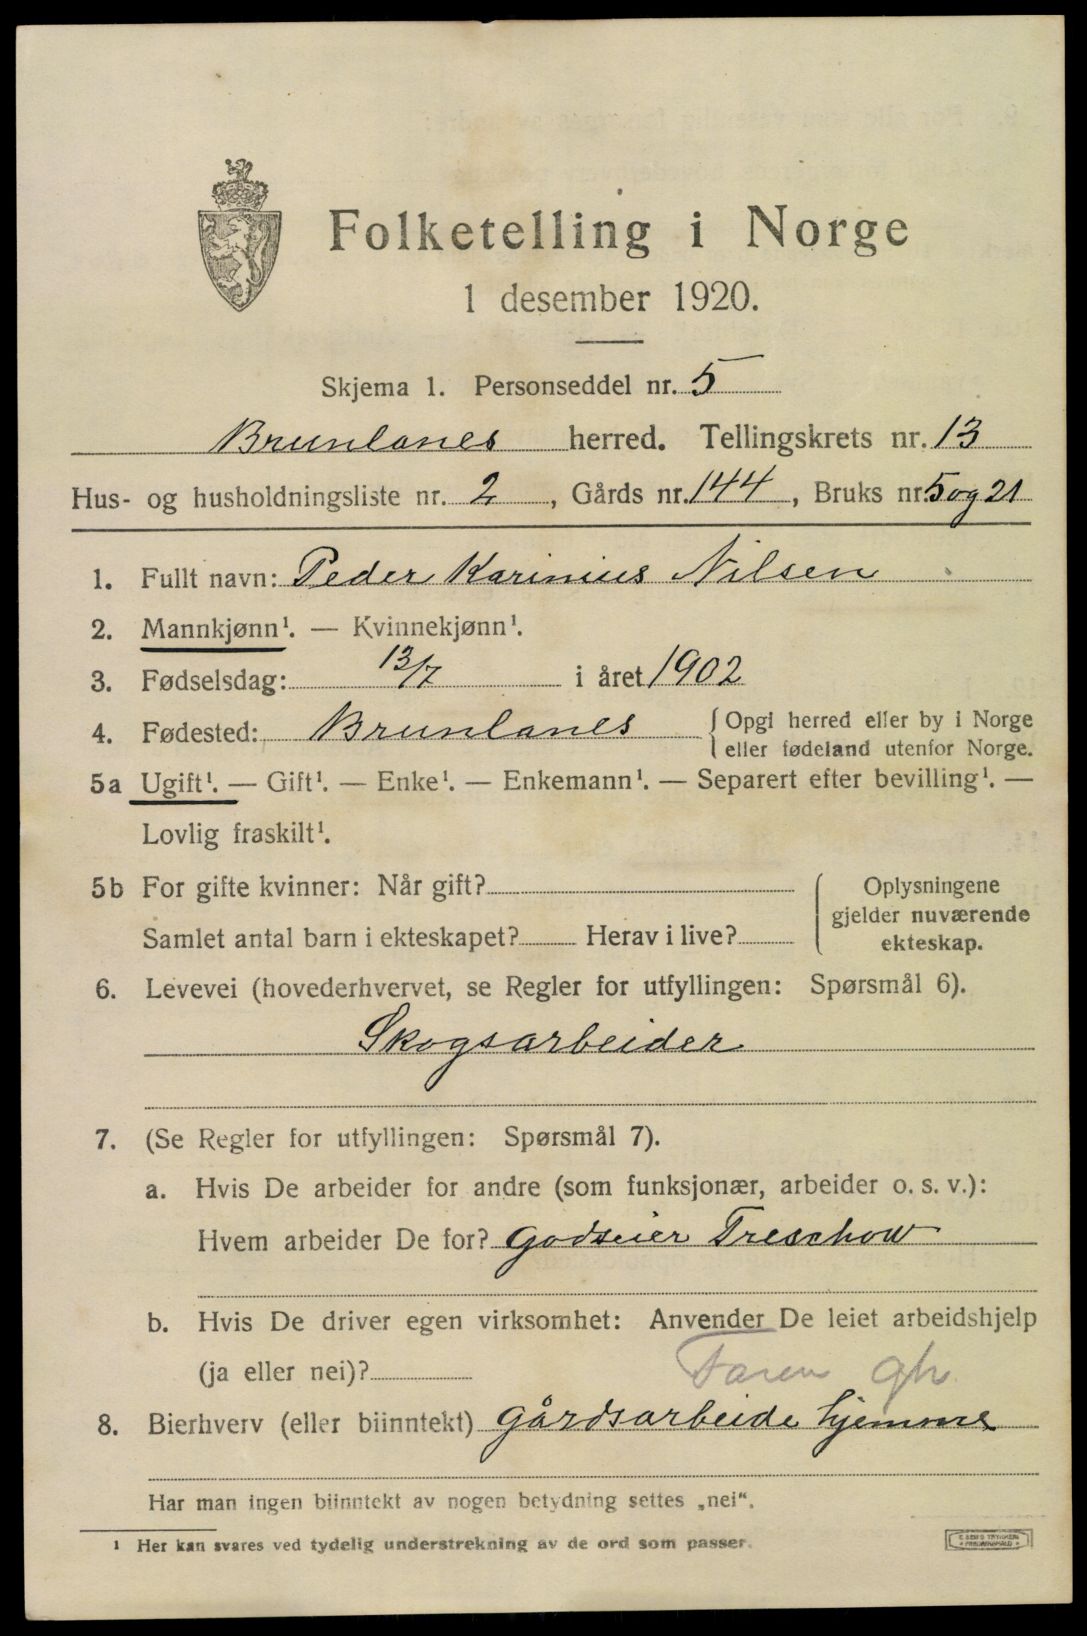 Folketelling i Norge
1 desember 1920.
Skjema 1. Personseddel nr. 5
Brunlanes herred. Tellingskrets nr. 13
Hus- og husholdningsliste nr. 2, Gårds nr. 144, Bruks nr. 5 og 21
1. Fullt navn: Peder Karinius Nilsen
2. Mannkjønn¹. — Kvinnekjønn¹.
3. Fødselsdag: 13/7 i året 1902
4. Fødested: Brunlanes {Opgi herred eller by i Norge
eller fødeland utenfor Norge.
5a Ugift¹. — Gift¹. — Enke¹. — Enkemann¹. — Separert efter bevilling¹. —
Lovlig fraskilt¹.
5b For gifte kvinner: Når gift?
Samlet antal barn i ekteskapet? Herav i live?
{Oplysningene
gjelder nuværende
ekteskap.
6. Levevei (hovederhvervet, se Regler for utfyllingen: Spørsmål 6).
Skogsarbeider
7. (Se Regler for utfyllingen: Spørsmål 7).
a. Hvis De arbeider for andre (som funksjonær, arbeider o. s. v.):
Hvem arbeider De for? Godseier Treschow
b. Hvis De driver egen virksomhet: Anvender De leiet arbeidshjelp
(ja eller nei)?
8. Bierhverv (eller biinntekt) Gårdsarbeide hjemme
Har man ingen biinntekt av nogen betydning settes „nei“.
¹ Her kan svares ved tydelig understrekning av de ord som passer.